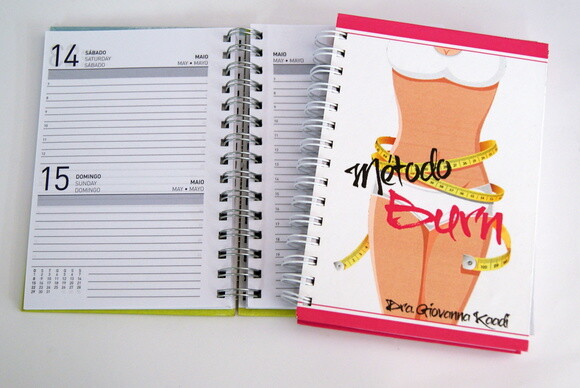 14
SÁBADO
SATURDAY
SÁBADO
MAIO
MAY • MAYO
15
DOMINGO
SUNDAY
DOMINGO
MAIO
MAY • MAYO
MAIO
MAY • MAYO
Método
Burn
Dra. Giovanna Kaadi